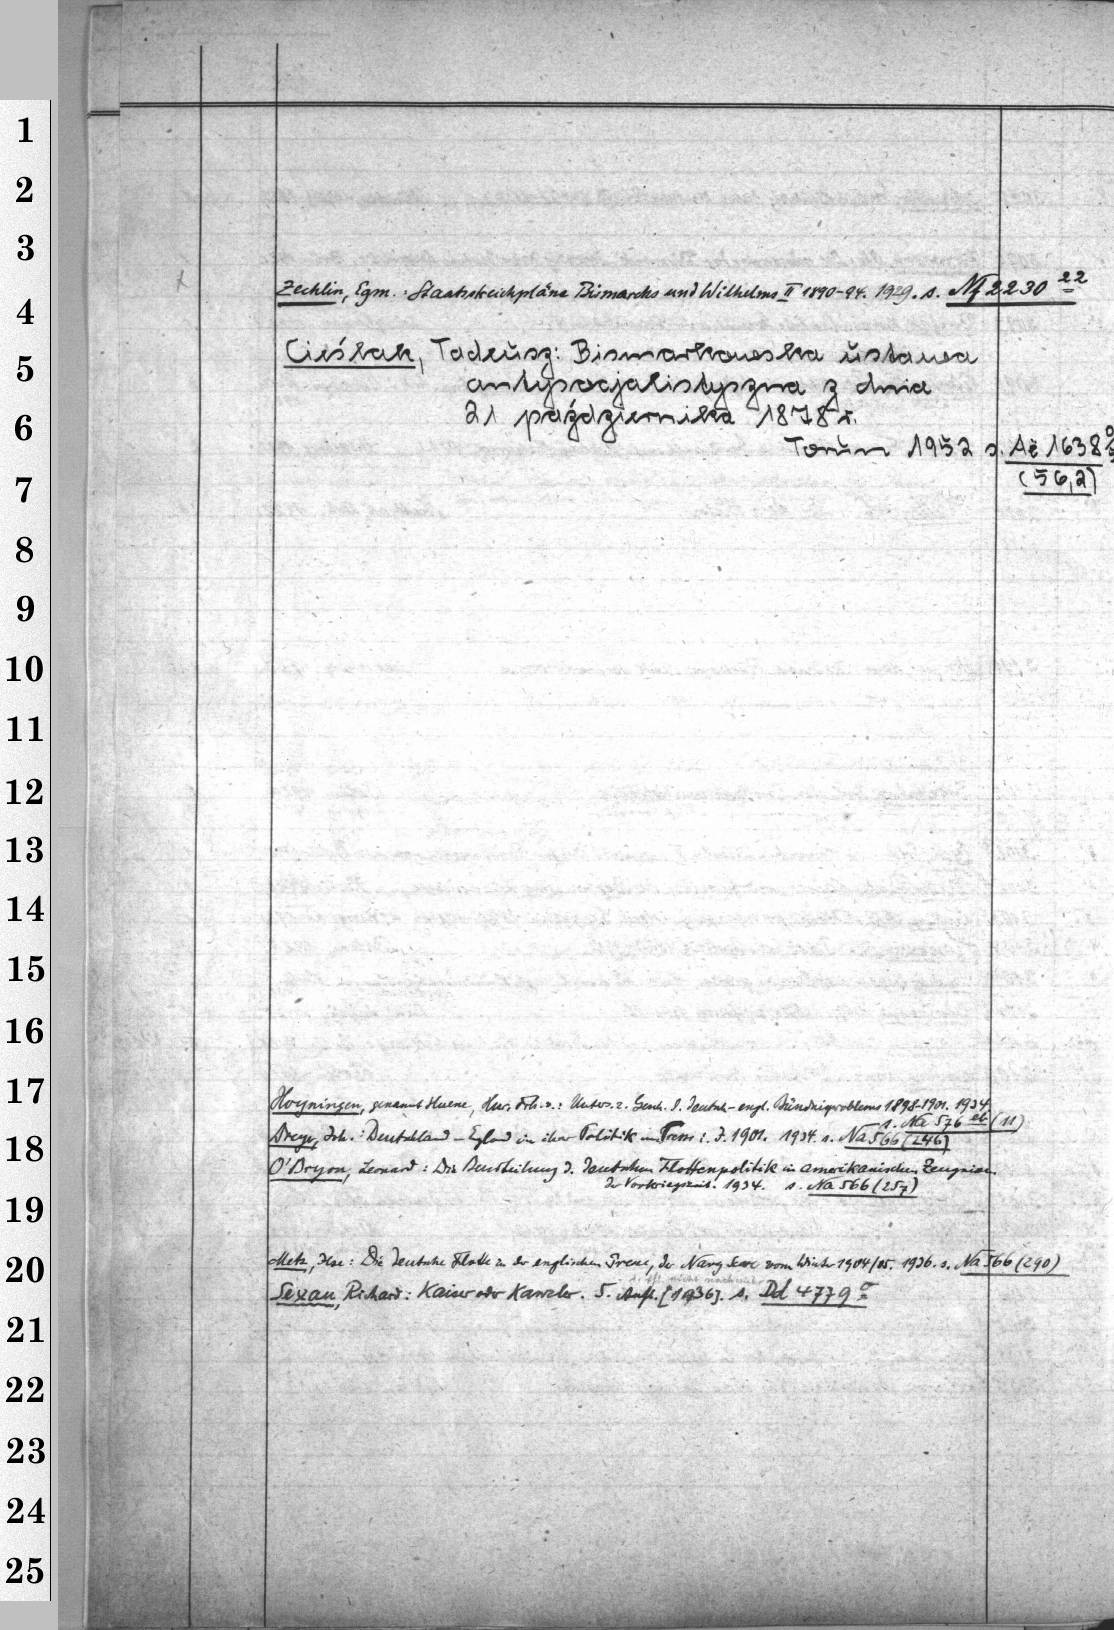 1
2
3
4
5
6
7
8
9
10
11
12
13
14
15
16
17
18
19
20
21
22
23
24
25
Zechlin, Egm.: Staatsstreichpläne Bismarcks und Wilhelms II 1890-94. 1929. s. Nf 2230 22
Cieślak, Tadeusz: Bismarkowska ustawa
antysocjalistyszna z dnia
21 października 1878 r.
Toruń 1952 s. Aë 1638
(56,2)
Hoyningen, genannt Huene, Frh. v.: Unters. z. Gesch. d. deutsch-engl. Bündnisproblems 1898-1901. 1934
s. Na 576 (11)
Dreyer, Joh.: Deutschland - England in ihrer Politik u. Presse i. J. 1901. 1934 s. Na 566 (246)
O'Bryon, Leonard: Die Beurteilung d. deutschen Flottenpolitik in amerikanischen Zeugnissen
der Vorkriegszeit. 1934. s. Na 566 (257)
Metz, Ilse: Die deutsche Flotte in der englischen Presse, der Navy Scare vom Winter 1904/05. 1936. s. Na 566 (290)
Sexau, Richard: Kaiser oder Kanzler. 5. Aufl. [1936]. s. Dd 4779 o